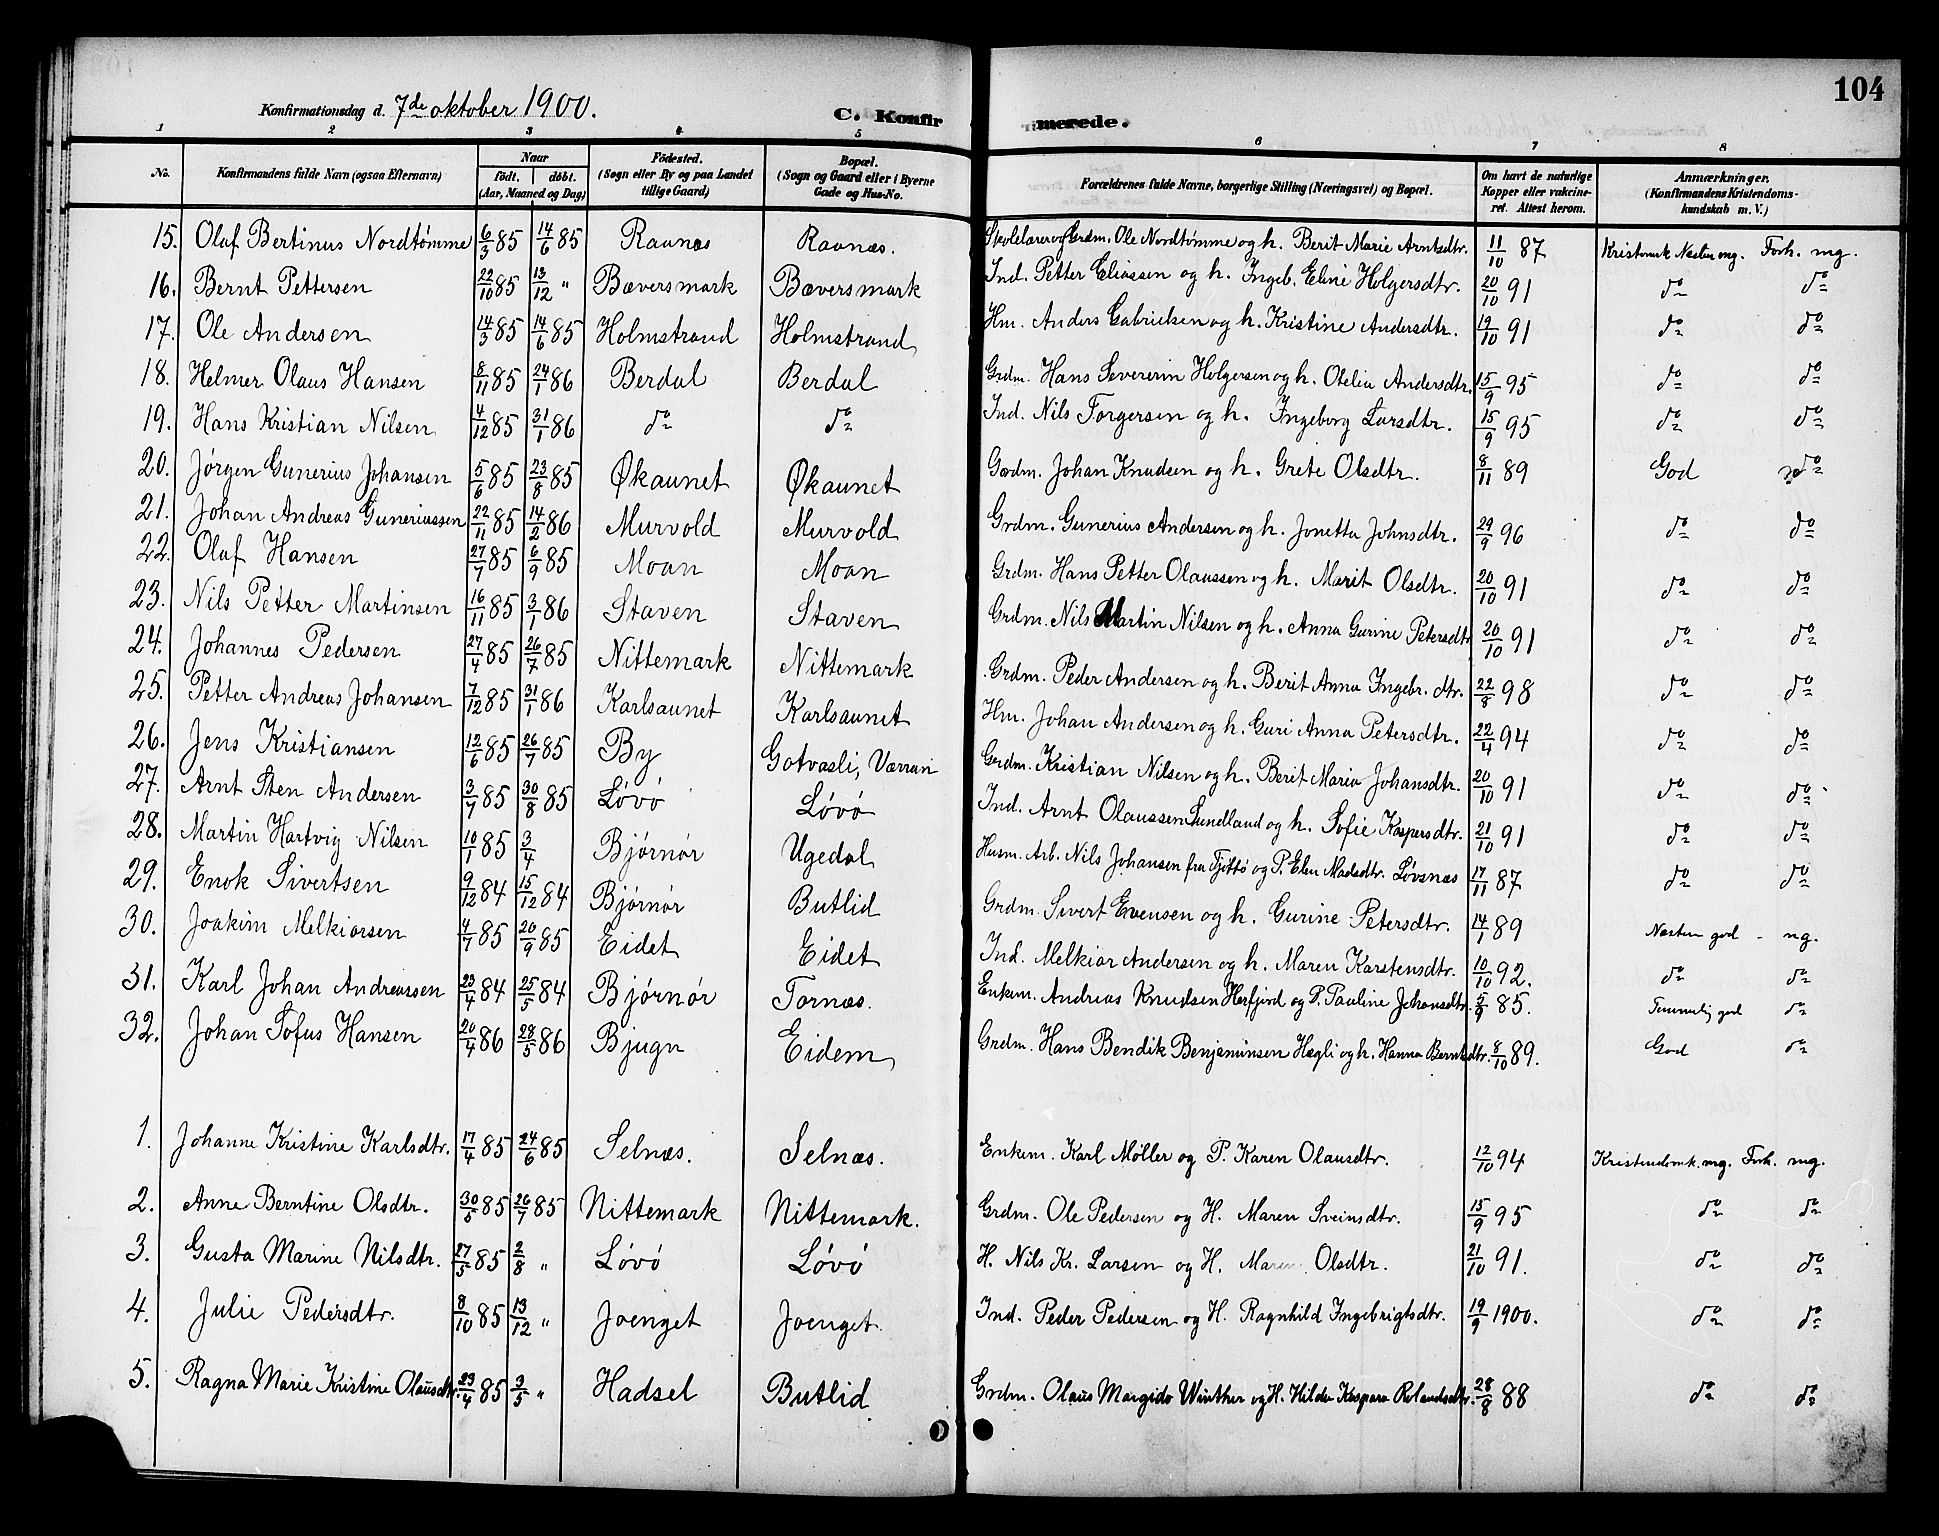 104
Konfirmationsdag d. 7de oktober 1900. C. Konfirmerede.
1 2 3 4 5 6 7 8
No. Konfirmandens fulde Navn (ogsaa Efternavn) Naar födt. döbt. (Aar, Maaned og Dag) Födested. (Sogn eller By og paa Landet tillige Gaard) Bopæl. (Sogn og Gaard eller i Byerne Gade og Hus-No. Forældrenes fulde Navne, borgerlige Stilling (Næringsvei) og Bopæl. Om havt de naturlige Kopper eller vaccineret. Attest herom. Anmærkninger. (Konfirmandens Kristendomskundskab m. V.)
15. Olaf Bertinus Nordtømme 6/3 85 14/6 85 Ravnæs Ravnæs. Skolelærer og Grdm. Ole Nordtømme og h. Berit Marie Arntsdtr. 11/10 87 Kristendk Næsten mg. Forh. mg.
16. Bernt Pettersen 22/10 85 13/12 " Bæversmark Bæversmark Ind. Petter Eliassen og h. Ingeb. Eline Holgersdtr. 20/10 91 do do
17. Ole Andersen 14/3 85 14/6 85 Holmstrand Holmstrand Hm. Anders Gabrielsen og h. Kristine Andersdtr. 19/10 91 do do
18. Helmer Olaus Hansen 8/11 85 24/1 86 Berdal Berdal Grdm. Hans Severerin Holgersen og h. Otelia Andersdtr. 15/9 95 do do
19. Hans Kristian Nilsen 4/12 85 31/1 86 do do Ind. Nils Torgersen og h. Ingeborg Larsdtr. 15/9 95 do do
20. Jørgen Gunerius Johansen 5/6 85 23/8 85 Økaunet Økaunet Gaardm. Johan Knudsen og h. Grete Olsdtr. 8/11 89 God do
21. Johan Andreas Guneriussen 22/11 85 14/2 86 Murvold Murvold Grdm. Gunerius Andersen og h. Jonetta Johnsdtr. 29/9 96 do do
22. Olaf Hansen 27/7 85 6/9 85 Moan Moan Grdm. Hans Petter Olaussen og h. Marit Olsdtr. 20/10 91 do do
23. Nils Petter Martinsen 16/11 85 3/1 86 Staven Staven Grdm. Nils Martin Nilsen og h. Anna Gurine Petersdtr 20/10 91 do do
24. Johannes Pedersen 27/4 85 26/7 85 Nittemark Nittemark Grdm. Peder Andersen og h. Berit Anna Ingebr. dtr. 22/8 98 do do
25. Petter Andreas Johansen 7/12 85 31/1 86 Karlsaunet Karlsaunet Hm. Johan Andersen og h. Guri Anna Petersdtr. 22/4 94 do do
26. Jens Kristiansen 12/6 85 26/7 85 By Gotvasli, Værran Grdm. Kristian Nilsen og h. Berit Maria Johansdtr. 20/10 91 do do
27. Arnt Sten Andersen 3/7 85 30/8 85 Løvø Løvø Ind. Arnt Olaussen Sundland og h. Sofie Kaspersdtr. 21/10 91 do do
28. Martin Hartvig Nilsen 10/1 85 3/4 Bjørnør Ugedal Husm. Arb. Nils Johansen fra Tjøttø og P. Elen Madsdtr. Løvsnæs 17/11 87 do do
29. Enok Sivertsen 9/12 84 15/12 84 Bjørnør Butlid Grdm. Sivert Evensen og h. Gurine Petersdtr. 14/1 89 Næsten god - mg.
30. Joakim Melkiorsen 4/7 85 20/9 85 Eidet Eidet Ind. Melkior Andersen og h. Maren Karstensdtr. 10/10 92. do do
31. Karl Johan Andreassen 23/4 84 25/5 84 Bjørnør Tørnæs. Enkem. Andreas Knudsen Herfjord og P. Pauline Johansdtr. 5/9 85. Temmelig god do
32. Johan Sofus Hansen 20/4 86 28/5 86 Bjugn Eidem Grdm. Hans Bendik Benjaminsen Hegli og h. Hanna Berntsdtr. 8/10 89. God do
1. Johanne Kristine Karlsdtr. 17/4 85 24/6 85 Selnæs. Selnæs. Enkem. Karl Møller og P. Karen Olausdtr. 12/10 94 Kristendomk. mg. Forh. mg.
2. Anne Berntine Olsdtr. 30/5 85 26/7 85 Nittemark Nittemark. Grdm. Ole Pedersen og H. Maren Sveinsdtr. 15/9 95 do do
3. Gusta Marine Nilsdtr. 27/5 85 2/8 " Løvø Løvø H. Nils Kr. Larsen og H. Maren Olsdtr. 21/10 91. do do
4. Julie Pedersdtr. 8/10 85 13/12 " Joenget Joenget. Ind. Peder Pedersen og H. Ragnhild Ingebrigtsdtr. 19/9 1900. do do
5. Ragna Marie Kristine Olausdtr. 23/4 85 3/5 " Hadsel Butlid Grdm. Olaus Margido Winther og H. Hilda Kaspara Rolandsdtr. 28/8 88 do do